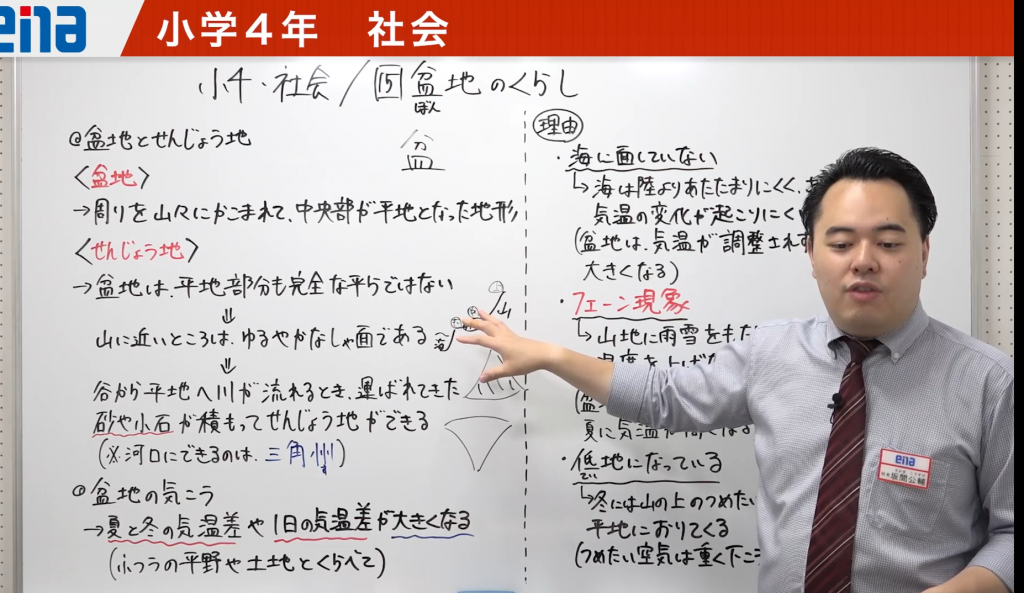 ena 小学4年 社会
小4・社会/⑮盆地のくらし
ぼん
盆
◎盆地とせんじょう地
〈盆地〉
→周りを山々にかこまれて、中央部が平地となった地形
〈せんじょう地〉
→盆地は、平地部分も完全な平らではない
⇓
山に近いところは、ゆるやかなしゃ面である
⇓
谷から平地へ川が流れるとき、運ばれてきた
砂や小石が積もってせんじょう地ができる
(※河口にできるのは、三角州)
す
◎盆地の気こう
→夏と冬の気温差や1日の気温差が大きくなる
(ふつうの平野や土地とくらべて)
山
理由
・海に面していない
↳海は陸よりあたたまりにくく、
気温の変化が起こりにく
(盆地は、気温が調整されず
大きくなる)
・フェーン現象
↳山地に雨雪をもた
温度を上げ
(盆
夏に気温が高くなる
・低地になっている
てい
↳冬には山の上のつめたい
平地におりてくる
(つめたい空気は重く下に
ena
坂間公輔